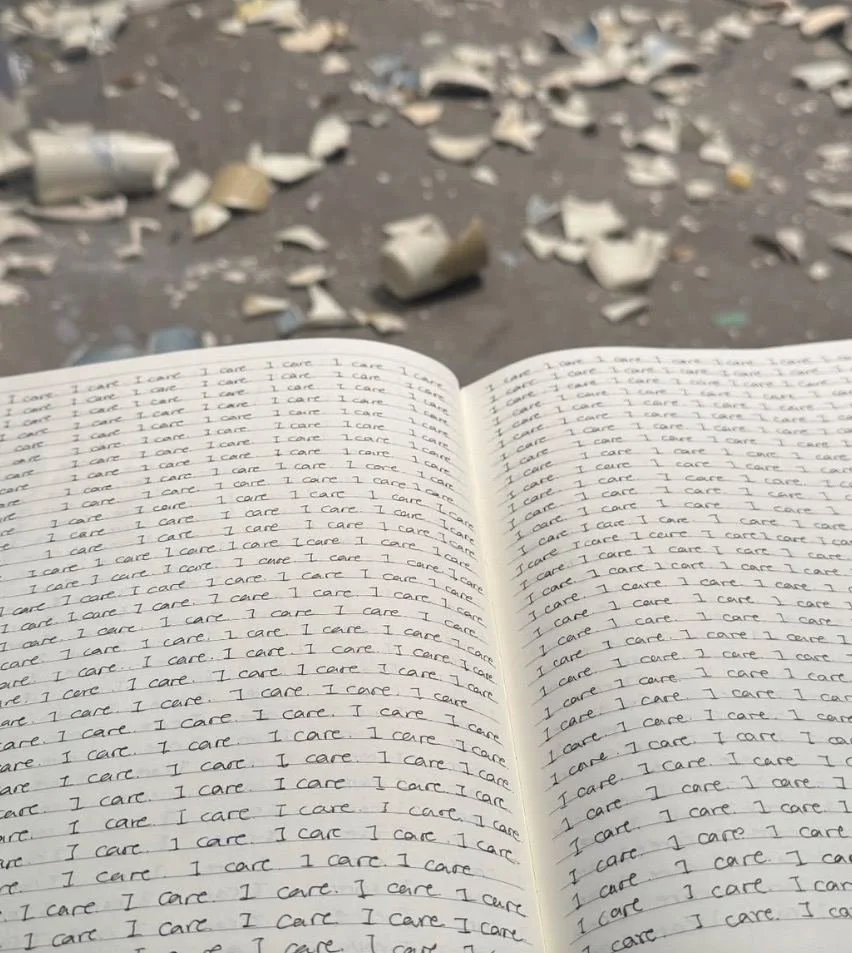 I care I care I care I care I care I care I care
I care I care I care I care I care I care I care
I care I care I care I care I care I care I care
I care I care I care I care I care I care I care
care I care I care I care I care I care I care
care I care I care I care I care I care I care
care I care I care I care I care I care I care
care I care I care I care I care I care I care
I care I care I care I care I care I care
I care I care I care I care I care I care
I care I care I care I care I care I care
I care I care I care I care I care I care
I care I care I care I care I care I care I care
I care I care I care. I care I care I care I care
I care I care. I care I care. I care I care I care
I care I care I care. I care I care I care I care
I care I care. I care I care I care I care
care. I care I care. I care I care I care I care
I care. I care. I care I care. I care I care
I care I care. I care I care I care
I care I care. I care. I care I care
care. I care. I care I care. I care I care
I care. I care. I care I care I care.
I care. I care I care. I care I care
care. I care. I care. I care I care I care
I care I care I care I care. I care
I care I care I care I care I care.
I care I care I care. I care
I care I care I care. I care I care
I care I care I care I care I care
I care I care
I care I care I care I care I care I care
I care I care I care I care I care I care
I care I care I care I care I care I care
I care I care I care I care I care
I care I care I care I care I care
I care I care I care I care I care
I care I care I care I care I care
I care I care I care I care I care
I care I care I care I care I care
I care I care I care I care I care
I care I care I care I care I care
I care I care I care I care I care
I care I care I care I care I care
I care. I care I care I care I care
I care. I care I care I care I care
I care I care I care I care
I care I care. I care I care I
I care I care. I care I care
I care I care. I care I care
I care. I care. I care I
I care. I care I care. I care
I care. I care I care I
I care. I care. I care I
I care I care. I care I
I care. I care. I care I
I care. I care I care
I care I care. I
I care I care. I
care. I care. I